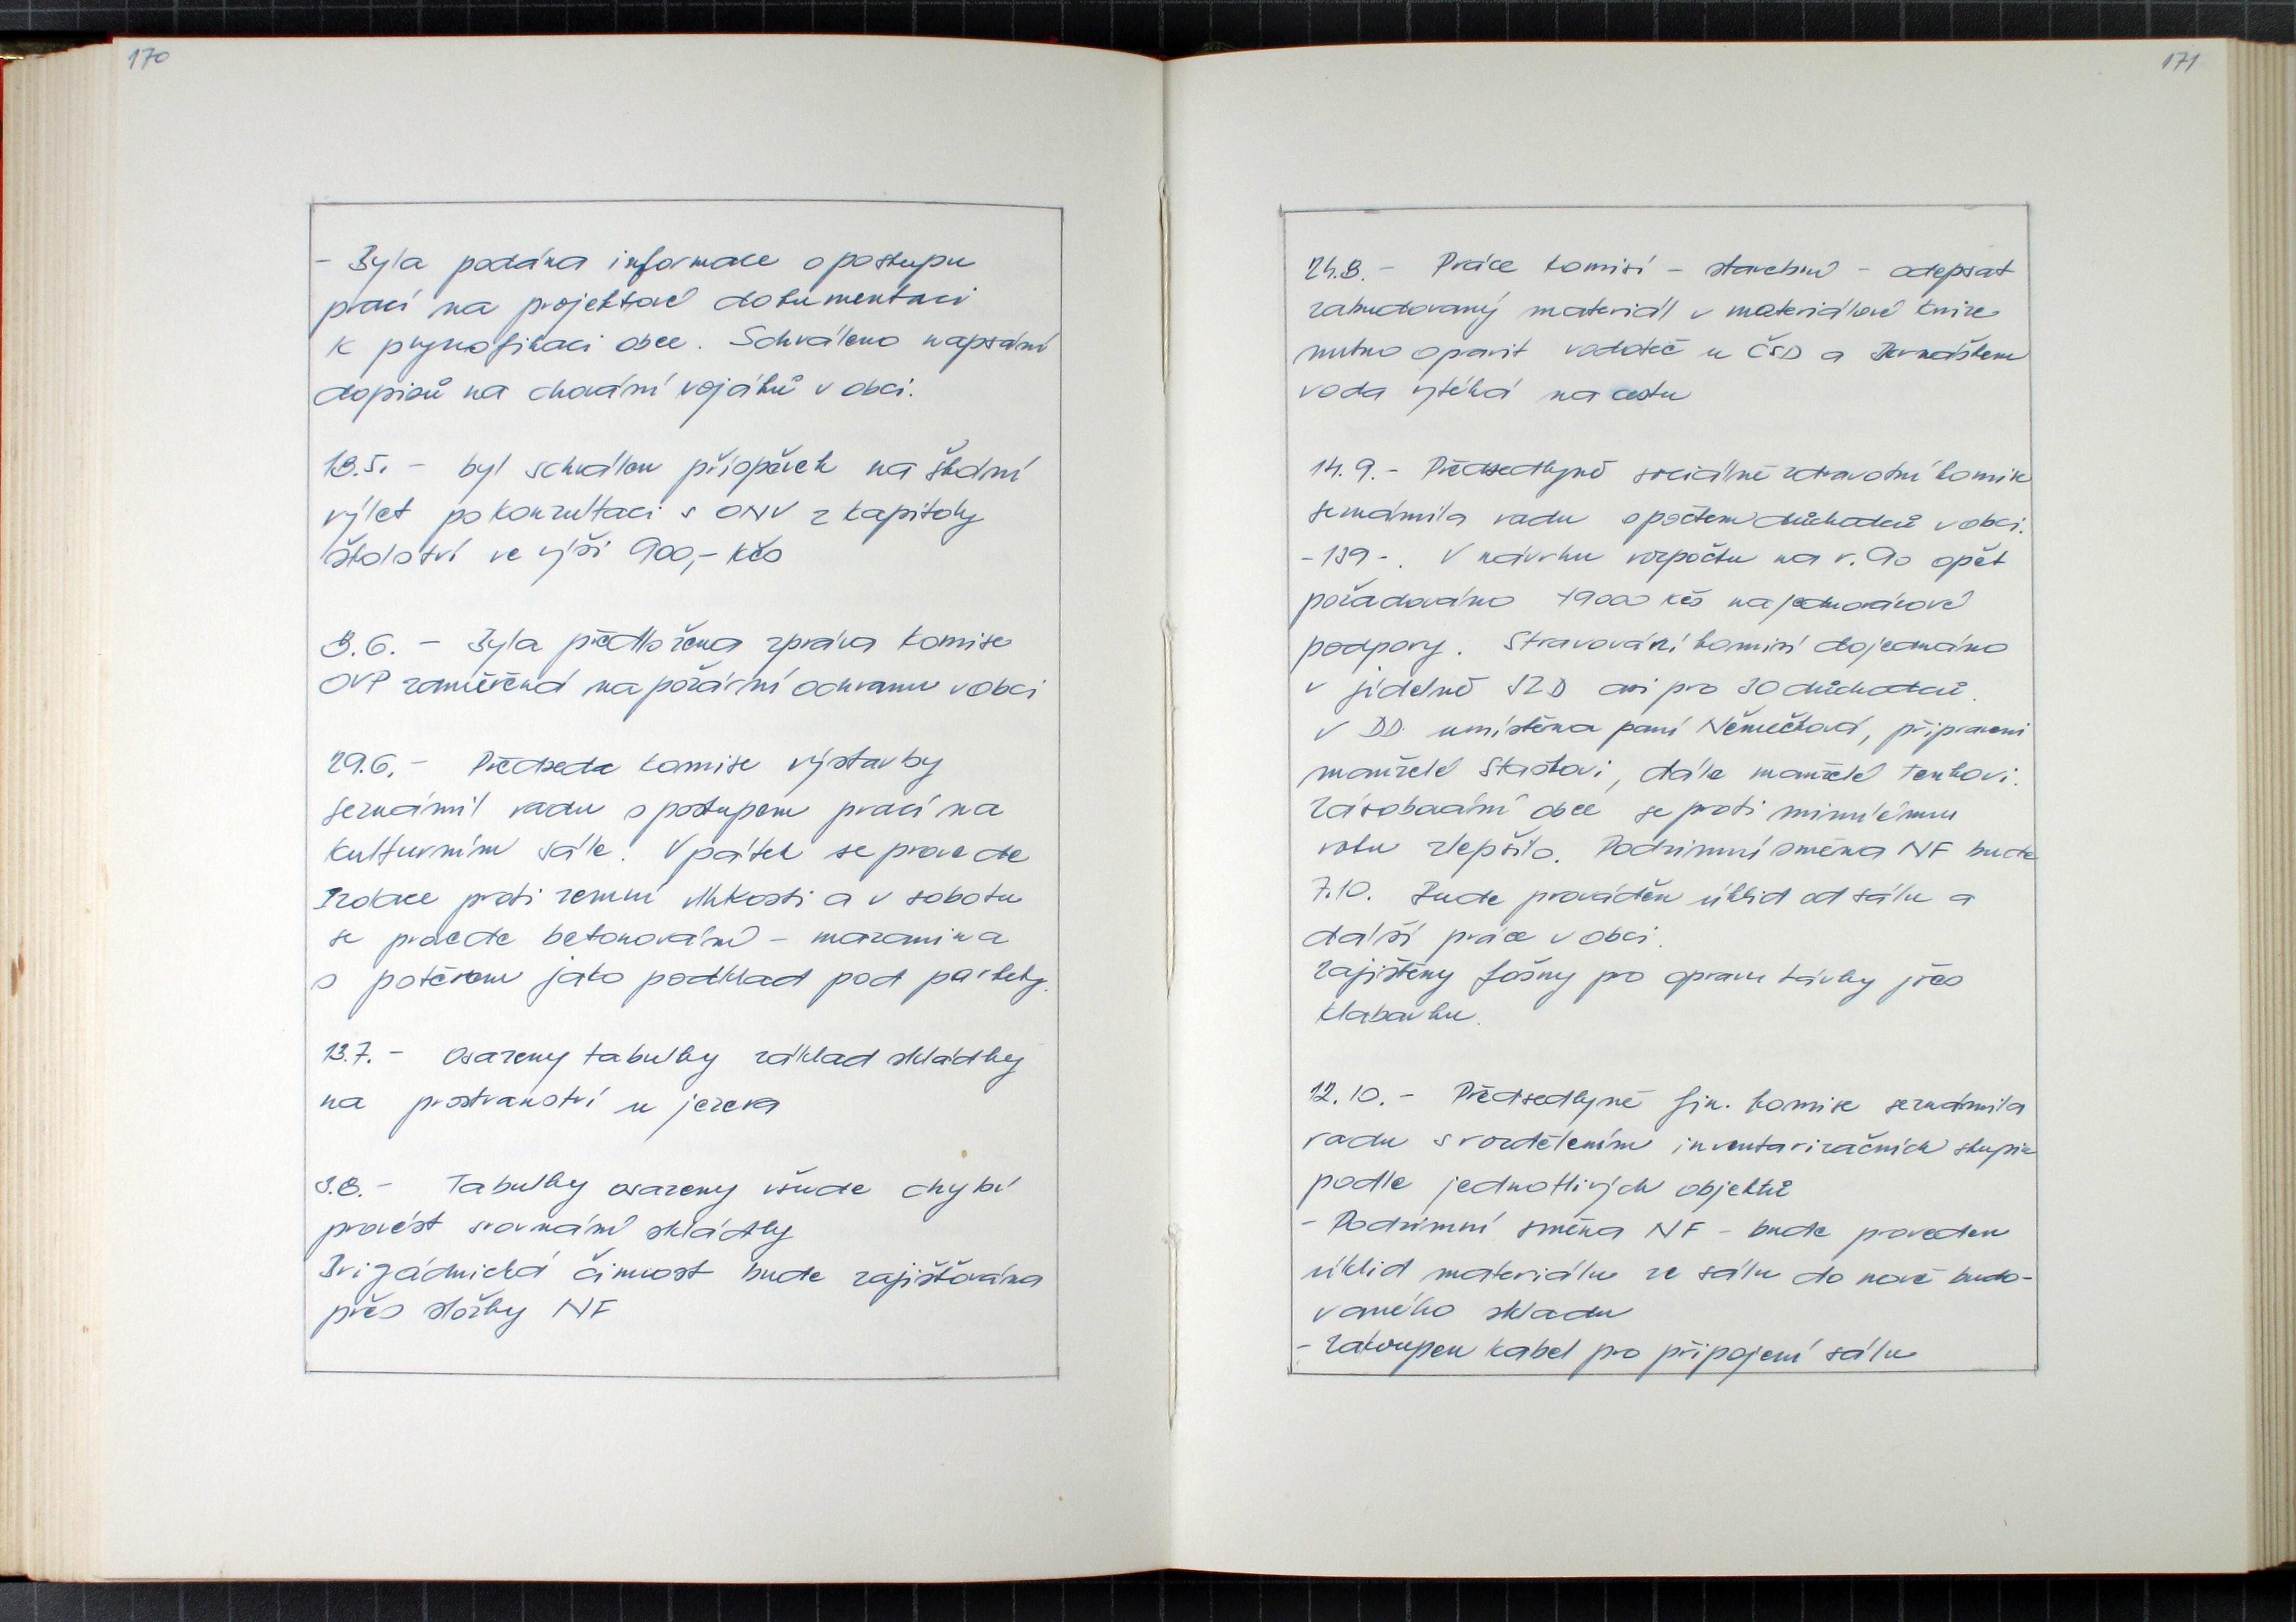 170
- Byla podána informace o postupu
prací na projektové dokumentaci
k plynofikaci obce. Schváleno napsání
dopisů na chování vojáků v obci.
18.5. - byl schválen příspěvek na školní
výlet po konzultaci s ONV z kapitoly
školství ve výši 900,- Kčs
8.6. - Byla předložena zpráva komise
OVP zaměřená na požární ochranu v obci
29.6. - Předseda komise výstavby
seznámil radu s postupem prací na
kulturním sále. V pátek se provede
Izolace proti zemní vlhkosti a v sobotu
se provede betonování - mazanina
s potěrem jako podklad pod parkety.
13.7. - Osazeny tabulky základ skládky
na prostranství u jezera
3.8. - Tabulky osazeny všude chybí
provést srovnání skládky
Brigádnická činnost bude zajišťována
přes složky NF
171
24.8. - Práce komisí - stavební - odepsat
zabudovaný materiál v materiálové knize
nutno opravit vodoteč u ČSD a
voda vytéká na cestu
14.9. - Předsedkyně sociálně zdravotní komise
seznámila radu s počtem důchodců v obci.
- 139 -. V návrhu rozpočtu na r. 90 opět
požadováno 19000 Kčs na jednorázové
podpory. Stravování komisí dojednáno
v jídelně SZD asi pro 30 důchodců.
V DD. umístěna paní Němečková, připraveni
manželé Stachovi, dále manželé Tenkovi.
Zásobování obce se proti minulému
roku zlepšilo. Podzimní směna NF bude
7.10. Bude prováděn úklid od sálu a
další práce v obci.
Zajištěny fošny pro opravu lávky přes
Klabavku.
12.10. - Předsedkyně fin. komise seznámila
radu s rozdělením inventarizačních skupin
podle jednotlivých objektů
- Podzimní směna NF - bude proveden
úklid materiálu ze sálu do nově budo-
vaného skladu
- Zakoupen kabel pro připojení sálu